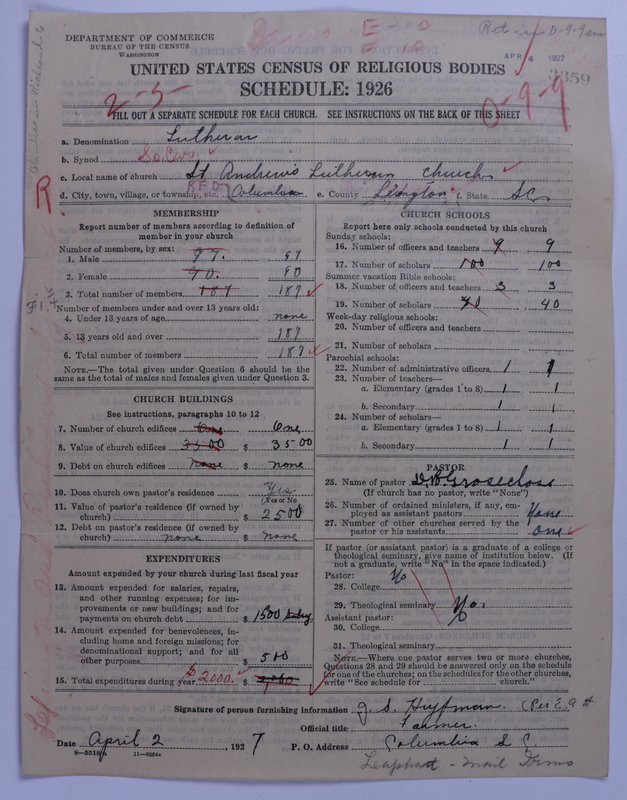 DEPARTMENT OF COMMERCE
BUREAU OF THE CENSUS
WASHINGTON
E-10
APR 4 1927
3359
UNITED STATES CENSUS OF RELIGIOUS BODIES
SCHEDULE: 1926
2-5-
0-9-9
FILL OUT A SEPARATE SCHEDULE FOR EACH CHURCH. SEE INSTRUCTIONS ON THE BACK OF THIS SHEET
a. Denomination Lutheran
b. Synod So. Car.
c. Local name of church St Andrews Lutheran Church
R
d. City, town, village, or township, etc. R.F.D. Columbia e. County Lexington f. State S.C.
MEMBERSHIP
Report number of members according to definition of
member in your church
Number of members, by sex:
1. Male 97. 97
2. Female 90. 90
3. Total number of members 187 187
Number of members under and over 13 years old:
4. Under 13 years of age none
5. 13 years old and over 187
6. Total number of members 187
NOTE.—The total given under Question 6 should be the
same as the total of males and females given under Question 3.
CHURCH BUILDINGS
See instructions, paragraphs 10 to 12
7. Number of church edifices One One
8. Value of church edifices 3500 $ 3500
9. Debt on church edifices none $ none
10. Does church own pastor's residence Yes
(Yes or No)
11. Value of pastor's residence (if owned by
church) $ 2500
12. Debt on pastor's residence (if owned by
church) none $ none
EXPENDITURES
Amount expended by your church during last fiscal year
13. Amount expended for salaries, repairs,
and other running expenses; for im-
provements or new buildings; and for
payments on church debt $ 1500
14. Amount expended for benevolences, in-
cluding home and foreign missions; for
denominational support; and for all
other purposes $ 500
15. Total expenditures during year $2000. $
CHURCH SCHOOLS
Report here only schools conducted by this church
Sunday schools:
16. Number of officers and teachers 9 9
17. Number of scholars 100 100
Summer vacation Bible schools:
18. Number of officers and teachers 3 3
19. Number of scholars 40 40
Week-day religious schools:
20. Number of officers and teachers
21. Number of scholars
Parochial schools:
22. Number of administrative officers 1 1
23. Number of teachers—
a. Elementary (grades 1 to 8) 1 1
b. Secondary 1 1
24. Number of scholars—
a. Elementary (grades 1 to 8) 1 1
b. Secondary 1 1
PASTOR
25. Name of pastor D.B. Groseclose
(If church has no pastor, write "None")
26. Number of ordained ministers, if any, em-
ployed as assistant pastors None
27. Number of other churches served by the
pastor or his assistants One
If pastor (or assistant pastor) is a graduate of a college or
theological seminary, give name of institution below. (If
not a graduate, write "No" in the space indicated.)
Pastor: No
28. College
29. Theological seminary No.
Assistant pastor:
30. College
31. Theological seminary
NOTE.—Where one pastor serves two or more churches,
Questions 28 and 29 should be answered only on the schedule
for one of the churches; on the schedules for the other churches,
write "See schedule for church."
Signature of person furnishing information J. S. Huffman (Per E. A. H
Official title Farmer
Date April 2, 1927 P. O. Address Columbia S C
Leaphart - Mail Firms